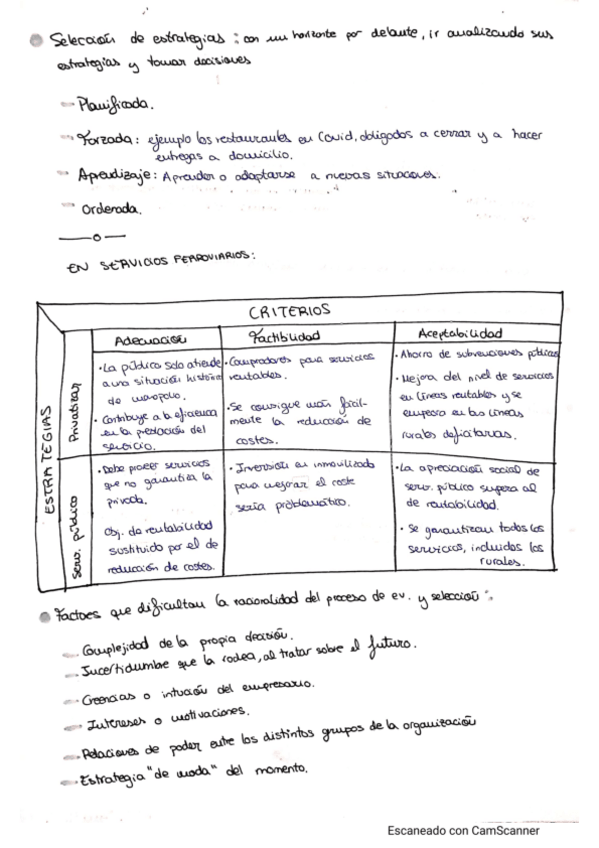 Selección de estrategias: con un horizonte por delante, ir analizando sus
estrategias y tomar decisiones
- Planificada.
- Forzada: ejemplo los restaurantes en Covid, obligados a cerrar y a hacer
entregas a domicilio.
- Aprendizaje: Aprender o adaptarse a nuevas situaciones.
- Ordenada.
EN SERVICIOS FERROVIARIOS:
CRITERIOS
Adecuación
Factibilidad
Aceptabilidad
ESTRATEGIAS
Privatizar
· La pública solo atiende
a una situación histórica
de monopolio.
· Contribuye a la eficiencia
en la prestación del
servicio.
· Compradores para servicios
rentables.
· Se consigue más fácil-
mente la reducción de
costes.
· Ahorro de subvenciones públicas
· Mejora del nivel de servicios
en líneas rentables y se
empeora en las líneas
rurales deficitarias.
Serv. público
· Debe proveer servicios
que no garantiza la
privada.
Obj. de rentabilidad
sustituido por el de
reducción de costes.
· Inversión en inmovilizado
para mejorar el coste
sería problemático.
· La apreciación social de
serv. público supera al
de rentabilidad.
· Se garantizan todos los
servicios, incluidos los
rurales.
Factores que dificultan la racionalidad del proceso de ev. y selección:
- Complejidad de la propia decisión.
- Incertidumbre que la rodea, al tratar sobre el futuro.
- Creencias o intuición del empresario.
- Intereses o motivaciones.
- Relaciones de poder entre los distintos grupos de la organización
- Estrategia "de moda" del momento.
Escaneado con CamScanner